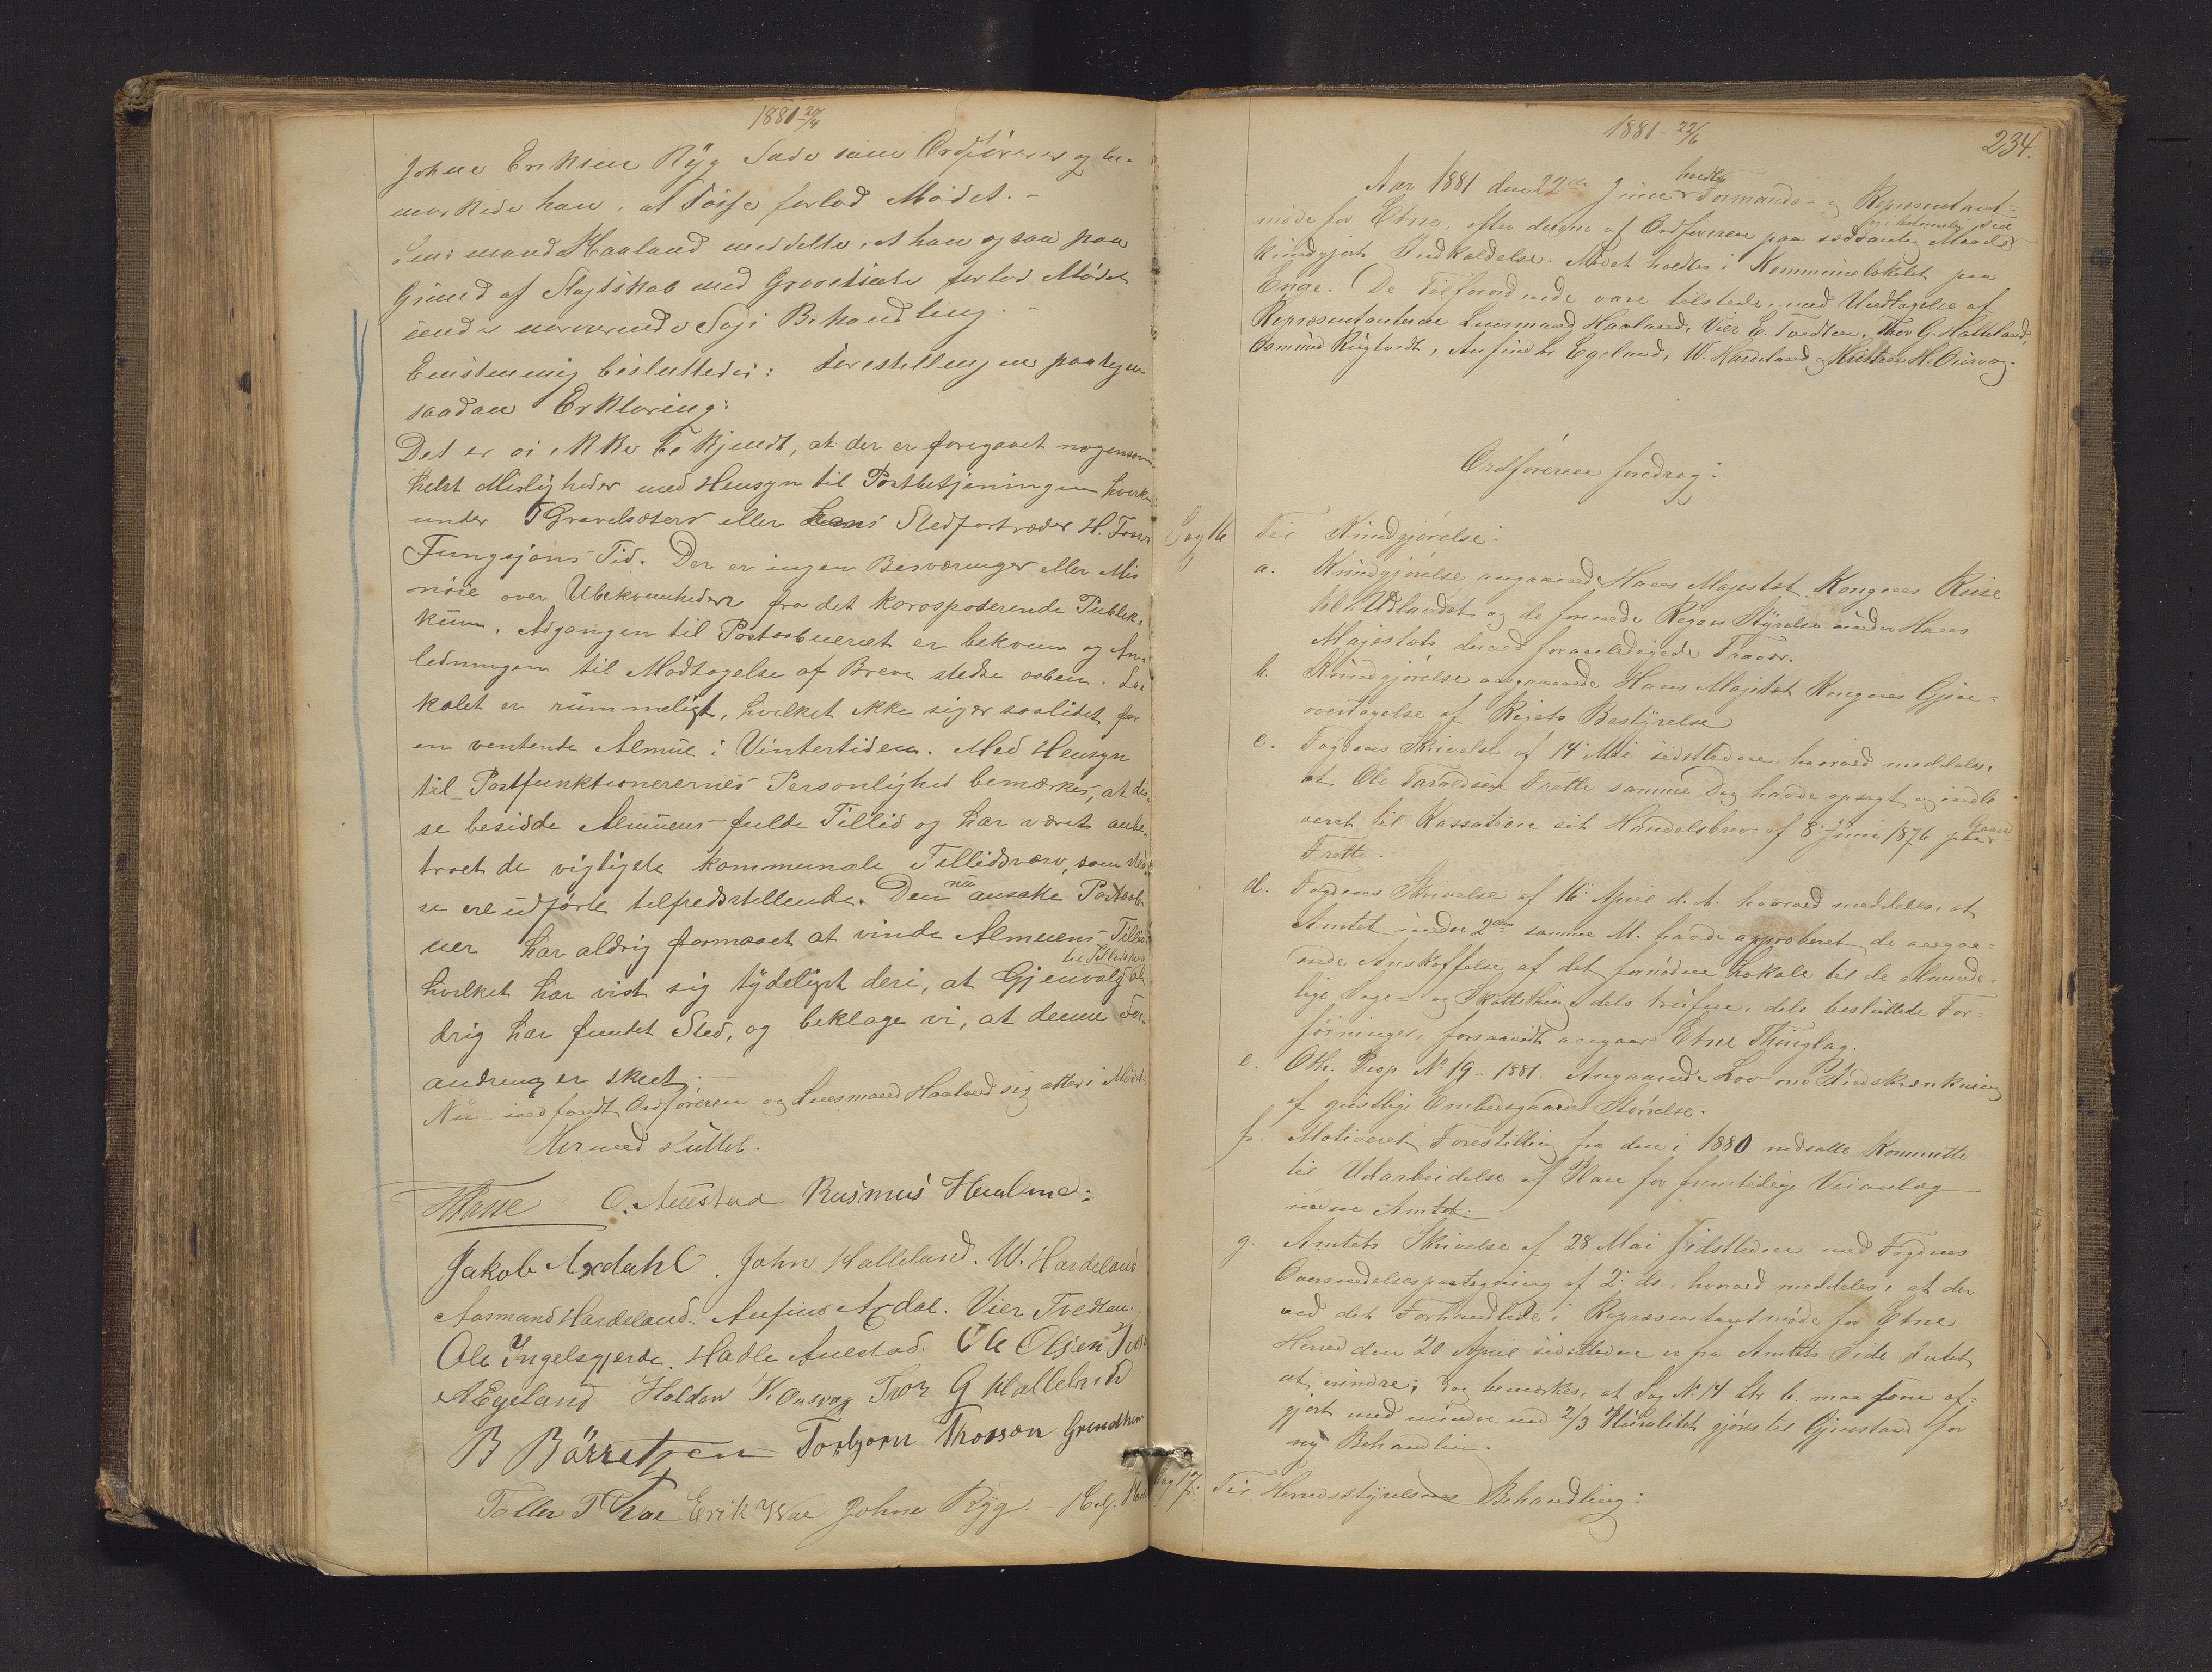 1881 20/4
Johne Eriksen Ryg Sade som Ordförerer og be-
mærkede han, at Tösse forlod Mödet. -
Lensmand Haaland meddelte, at han ogsaa paa
Grund af Slagtskab med forlod Mödet
under nærværende Sags Behandling. -
Eenstemmig besluttedes: Forestillingen paategn.
saadan Erklæring:
Det er os ikke bekjendt, at der er foregaaet nogensom-
helst Misligheder med Hensyn til Postbetjeningen hverken
under T Gravelsæters eller hans Stedfortræder H.
Fungsjons-Tid. Der er ingen Besværinger eller Mis
nöie over Ubekvemheder fra det korosponderende Publik-
kum. Adgangen til Postaabneriet er bekvem og An-
ledningen til Modtagelse af Breve stedse aaben. Lo-
kalet er rummeligt, hvilket ikke siger saalidet for
en ventende Almue i Vintertiden. Med Hensyn
til Postfunktionerernes Personlighed bemærkes, at dis-
se besidde Almuens fulde Tillid og har været anbe-
troet de vigtigste kommunale Tillidsværv, som dis-
se ere udförte tilfredsstillende. Den nu ansatte Postaab-
ner har aldrig formaaet at vinde Almuens Tillid
hvilket har vist sig tydeligst deri, at Gjenvalg til Tillidshverv al
drig har fundet Sted, og beklage vi, at denne For-
andreng er skeet. -
Nu indfandt Ordföreren og Lensmand Haaland sig atter i Mödet.
Hermed sluttet.
HTösse O. Austad Rasmus
Jakob Axdahl. John Halleland. W. Hardeland
Aasmund Hardeland. Anfind Axdal. Vier Tvedten.
Ole Ingelsgjerde. Hadle Austad. Ole Olsen
AEgeland Haldor K. Ousvag Thor G Halleland
B Börretzen Torbjorn Thorson Grindheim
Töller T Erik Johne Ryg. Helg.
1881 - 22/6
234.
Aar 1881 den 22de Juni holdtes Formands- og Representant-
möde for Etne, efter derom af Ordföreren paa sædvanlig Maade og i betimelig Tid
kundgjort Indkaldelse. Mödet holdtes i Kommunelokalet paa
Enge. De Tilforordnede vare tilstede, med Undtagelse af
Repræsentanterne Lensmand Haaland, Vier E. Tvedten, Thor G. Halleland,
Osmund Rugtvedt, Anfind Egeland, W. Hardeland og H. Ousvag.
Ordföreren foredrog:
Sag 16 Til Kundgjörelse:
a. Kundgjörelse angaaende Hans Majestæt Kongens Reise
til Udlandet og de fornede Regjerings Styrelse under Hans
Majestæts derved foranledigede Fravær.
b. Kundgjörelse angaaende Hans Majestæt Kongens Gjen-
overtagelse af Rigets Bestyrelse
c. Fogdens Skrivelse af 14 Mai sidstleden, hvorved meddeles,
at Ole Taraldsen Frette samme Dag havde opsagt og indle
veret til Kassation sit Handelsbrev af 8 Juni 1876 paa Gaard
Frette.
d. Fogdens Skrivelse af 16 April d. A. hvorved meddeles, at
Amtet under 2den samme M. havde approberet de angaa-
ende Anskaffelse af det fornödne Lokale til de alminde-
lige Sage- og Skattething dels trufne, dels besluttede For-
föininger, forsaavidt angaar Etne Thinglag.
e. Oth. Prop No 19 - 1881. Angaaende Lov om Indskrænkning
af geistlige Embedsgaardes Störrelse.
f. Motiveret Forestilling fra den i 1880 nedsatte Kommitte
til Udarbeidelse af Plan for fremtidige Veianlæg
inden Amtet.
g. Amtets Skrivelse af 28 Mai sidstleden med Fogdens
Oversendelsespaategning af 2 ds., hvorved meddeles, at der
ved det Forhandlede i Repræsentantmöde for Etne
Herred den 20 April sidstleden er fra Amtets Side Intet
at erindre; Dog bemærkes, at Sag No 14 Ltr b. maa som af-
gjort med mindre end 2/3 Pluralitet gjöres til Gjenstand for
ny Behandlin.
Sag 17. Til Herredsstyrelsens Behandling: